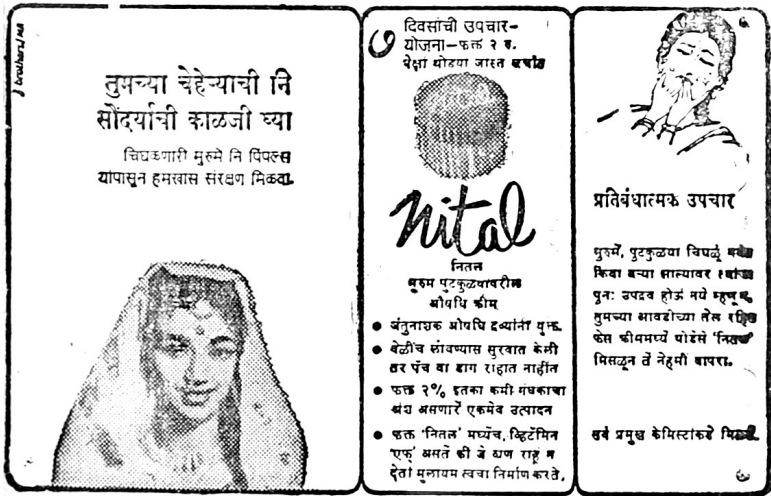 brothers/MA
तुमच्या चेहेऱ्याची नि
सौंदर्याची काळजी घ्या
चिघळणारी मुरुमे नि पिंपल्स
यांपासून हमखास संरक्षण मिळवा.
७ दिवसांची उपचार-
योजना-फक्त २ रु.
पेक्षां थोडया जास्त खर्चांत
Nital
नितल
मुरुम पुटकुळयांवरील
औषधि क्रीम
● जंतुनाशक औषधि द्रव्यांनी युक्त.
● वेळींच लावण्यास सुरवात केली
तर पॅच वा डाग राहात नाहींत
● फक्त २% इतका कमी गंधकाचा
अंश असणारें एकमेव उत्पादन
● फक्त 'नितल' मध्येंच, व्हिटॅमिन
'एफ्' असतें की जे व्रण राहूं न
देतां मुलायम त्वचा निर्माण करते.
प्रतिबंधात्मक उपचार
मुरुमें, पुटकुळया चिघळूं नयेत
किंवा बऱ्या झाल्यावर त्यांचा
पुनः उपद्रव होऊं नये म्हणून,
तुमच्या आवडीच्या तेल रहित
फेस क्रीममध्यें थोडेसे 'नितल'
मिसळून तें नेहमी वापरा.
सर्व प्रमुख केमिस्टांकडे मिळतें.